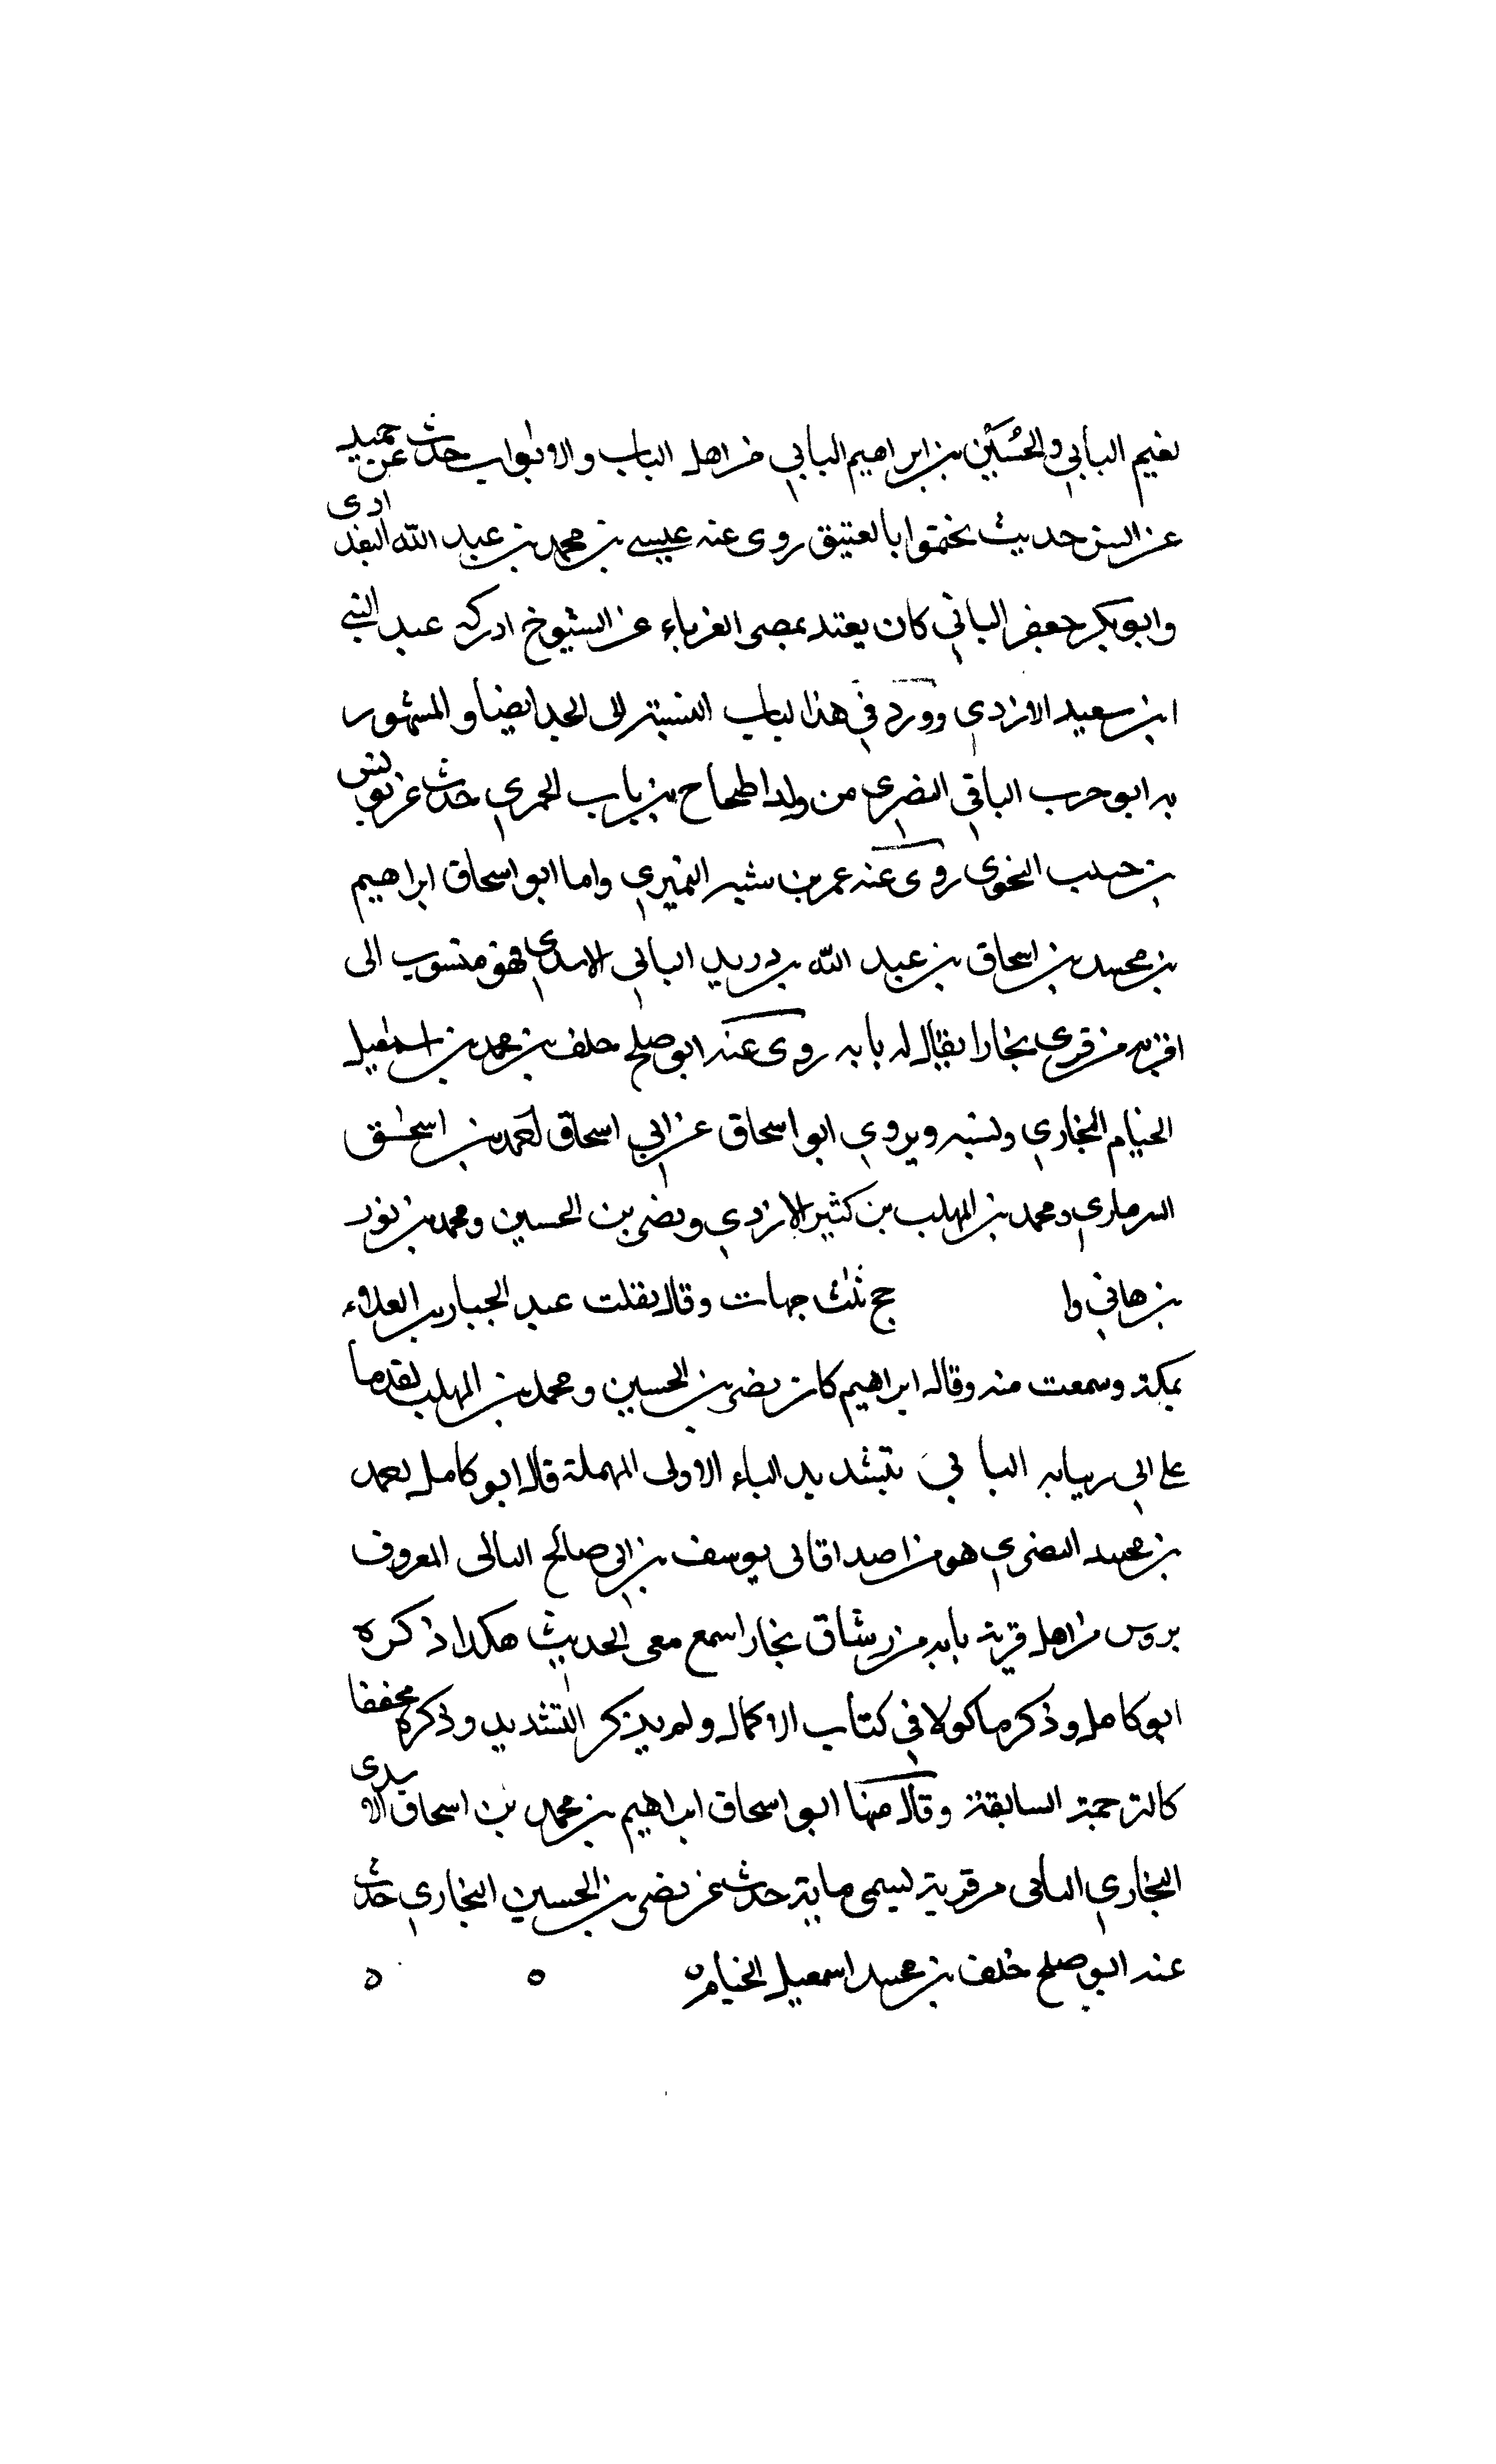 نعيم البابي والحُسَيْن بن ابراهيم البابي من اهل الباب والابواب حدث عن حميد
عن انس حديث تختموا بالعقيق روى عنه عيسى بن محمد بن عبد الله البغدادى
وابو بكر جعفر البابي كان يعتد بمصر الغرباء عن الشيوخ ادركه عبد الغني
ابن سعيد الازدي وورد في هذا الباب النسبة الى الجد ايضا والمشهور
به ابو حرب البابي النصري من ولد الححاح بن باب الحميري حدث عن يونس
بن حبيب النحوى روى عنه عمر بن شبه النميري واما ابو اسحاق ابراهيم
بن محمد بن اسحاق بن عبد الله بن دريد البابي الاسدي فهو منسوب الى
قرية من قرى بخارا يقال له بابه روى عنه ابو صلح خلف بن محمد بن اسمعيل
الخيام البخاري ونسبه ويروي ابو اسحاق عن ابي اسحاق احمد بن اسحق
السرماري ومحمد بن المهلب بن كثير الازدي ونصر بن الحسين ومحمد بن نور
بن هاني وا حج ثلث جهات وقال نقلت عبد الجبار بن العلاء
بمكة وسمعت منه وقال ابراهيم كان نصر بن الحسين ومحمد بن المهلب تقدما
على ابي البابي بتشديد الباء الاولى المهملة قال ابو كامل احمد
بن محمد النصري هو من اصداقائى يوسف بن ابي صالح البابى المعروف
من اهل قرية بابه من بخارا سمع معى الحديث هكذا ذكره
ابو كامل وذكر ماكولا في كتاب الاكمال ولم يذكر التشديد وذكره مخففا
كالترجمة السابقة وقال منها ابو اسحاق ابراهيم بن محمد بن اسحاق الاسدى
البخاري البابى من قرية تسمى بابة حدث عن نصر بن الحسين البخاري حدث
عنه ابو صلح خلف بن محمد اسمعيل الخيام ه ه ه